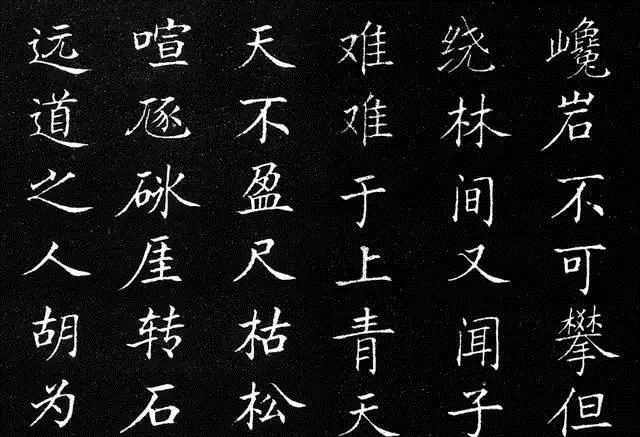 巉岩不可攀但
绕林间又闻子
难难于上青天
天不盈尺枯松
喧豗砯厓转石
远道之人胡为